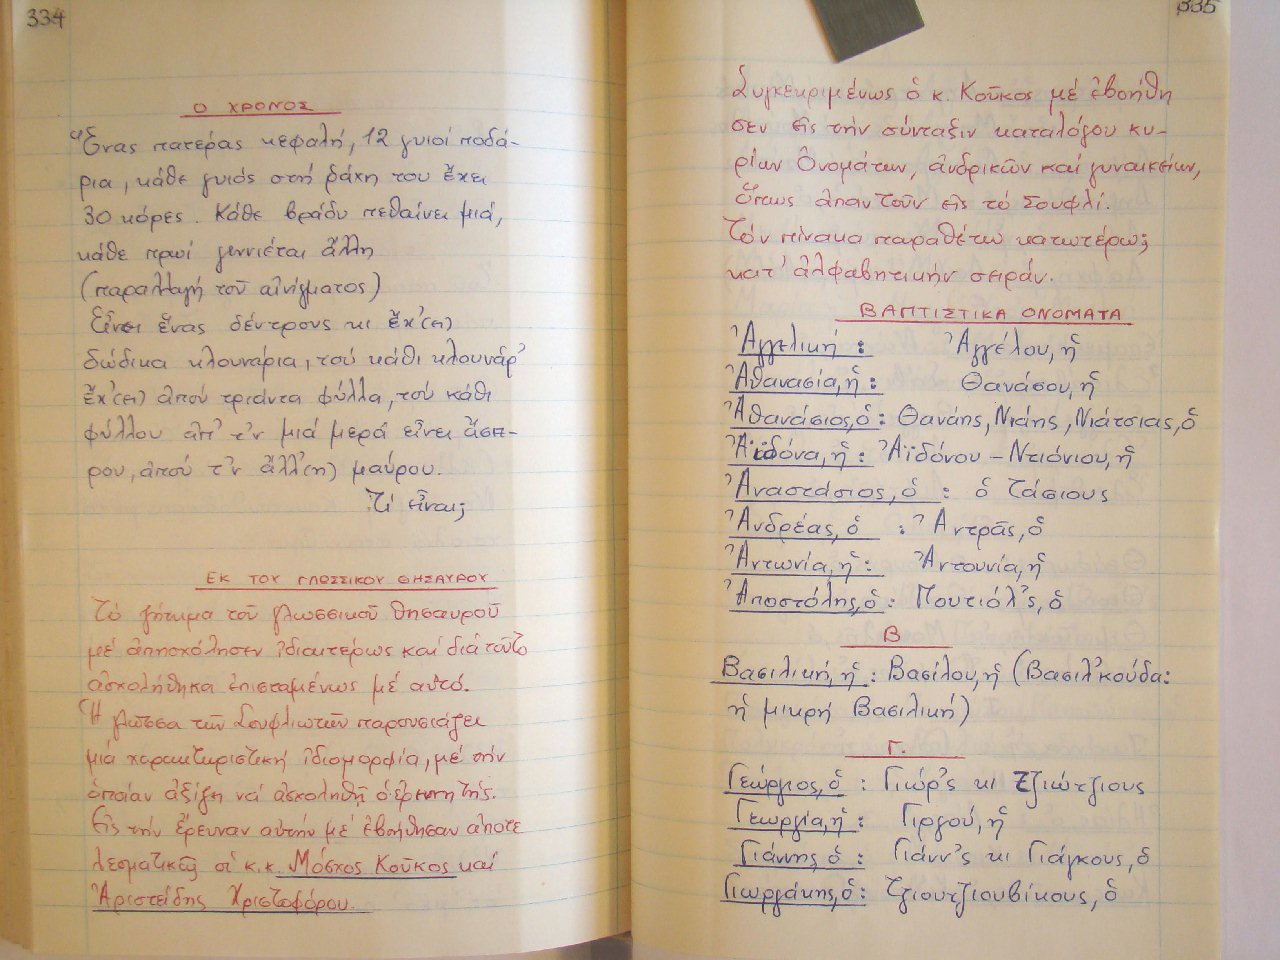 334
Ο ΧΡΟΝΟΣ
Ἕνας πατέρας κεφαλή, 12 γυιοί ποδά-
ρια, κάθε γυιός στή ράχη του ἔχει
30 κόρες. Κάθε βράδυ πεθαίνει μιά,
κάθε πρωί γεννιέται ἄλλη
(παραλλαγή τοῦ αἰνίγματος)
Εἶνει ἕνας δέντρους κι ἔχ'(ει)
δώδικα κλουνάρια, τού κάθι κλουνάρ'
ἔχ'(ει) ἀπού τριάντα φύλλα, τού κάθι
φύλλου ἀπ' τ'ν μιά μερά εἶνει ἄσπ-
ρου, ἀπού τ'ν ἄλλ'(η) μαύρου.
Τί εἶναι;
ΕΚ ΤΟΥ ΓΛΩΣΣΙΚΟΥ ΘΗΣΑΥΡΟΥ
Τό ζήτημα τοῦ γλωσσικοῦ θησαυροῦ
μέ ἀπησχόλησεν ἰδιαιτέρως καί διά τοῦτο
ἀσχολήθηκα ἐπισταμένως μέ αὐτό.
Ἡ γλῶσσα τῶν Σουφλιωτῶν παρουσιάζει
μιά χαρακτηριστική ἰδιομορφία, μέ τήν
ὁποίαν ἀξίζει νά ἀσχοληθῇ ὁ ἐρευνητής.
Εἰς τήν ἔρευναν αὐτήν μέ ἐβοήθησαν ἀποτε
λεσματικῶς οἱ κ.κ. Μόσχος Κοῦκος καί
Ἀριστείδης Χριστοφόρου.
335
Συγκεκριμένως ὁ κ. Κοῦκος μέ ἐβοήθη
σεν εἰς τήν σύνταξιν καταλόγου κυ-
ρίων Ὀνομάτων, ἀνδρικῶν καί γυναικείων,
ὅπως ἀπαντοῦν εἰς τό Σουφλί.
Τόν πίνακα παραθέτω κατωτέρω;
κατ' ἀλφαβητικήν σειράν.
ΒΑΠΤΙΣΤΙΚΑ ΟΝΟΜΑΤΑ
Ἀγγελική : Ἀγγέλου, ἡ
Ἀθανασία, ἡ : Θανάσου, ἡ
Ἀθανάσιος, ὁ : Θανάης, Νιάης, Νιάτσιας, ὁ
Ἀϊδόνα, ἡ : Ἀϊδόνου - Ντιόνιου, ἡ
Ἀναστάσιος, ὁ : ὁ Τάσιους
Ἀνδρέας, ὁ : Ἀντρᾶς, ὁ
Ἀντωνία, ἡ : Ἀντουνία, ἡ
Ἀποστόλης, ὁ : Πουτιόλ'ς, ὁ
Β
Βασιλική, ἡ : Βασίλου, ἡ (Βασιλ'κούδα:
ἡ μικρή Βασιλική)
Γ.
Γεώργιος, ὁ : Γιώρ'ς κι Τζιώτζιους
Γεωργία, ἡ : Γιργού, ἡ
Γιάννης ὁ : Γιάνν'ς κι Γιάγκους, ὁ
Γιωργάκης, ὁ : Τζιουτζιουβίκους, ὁ